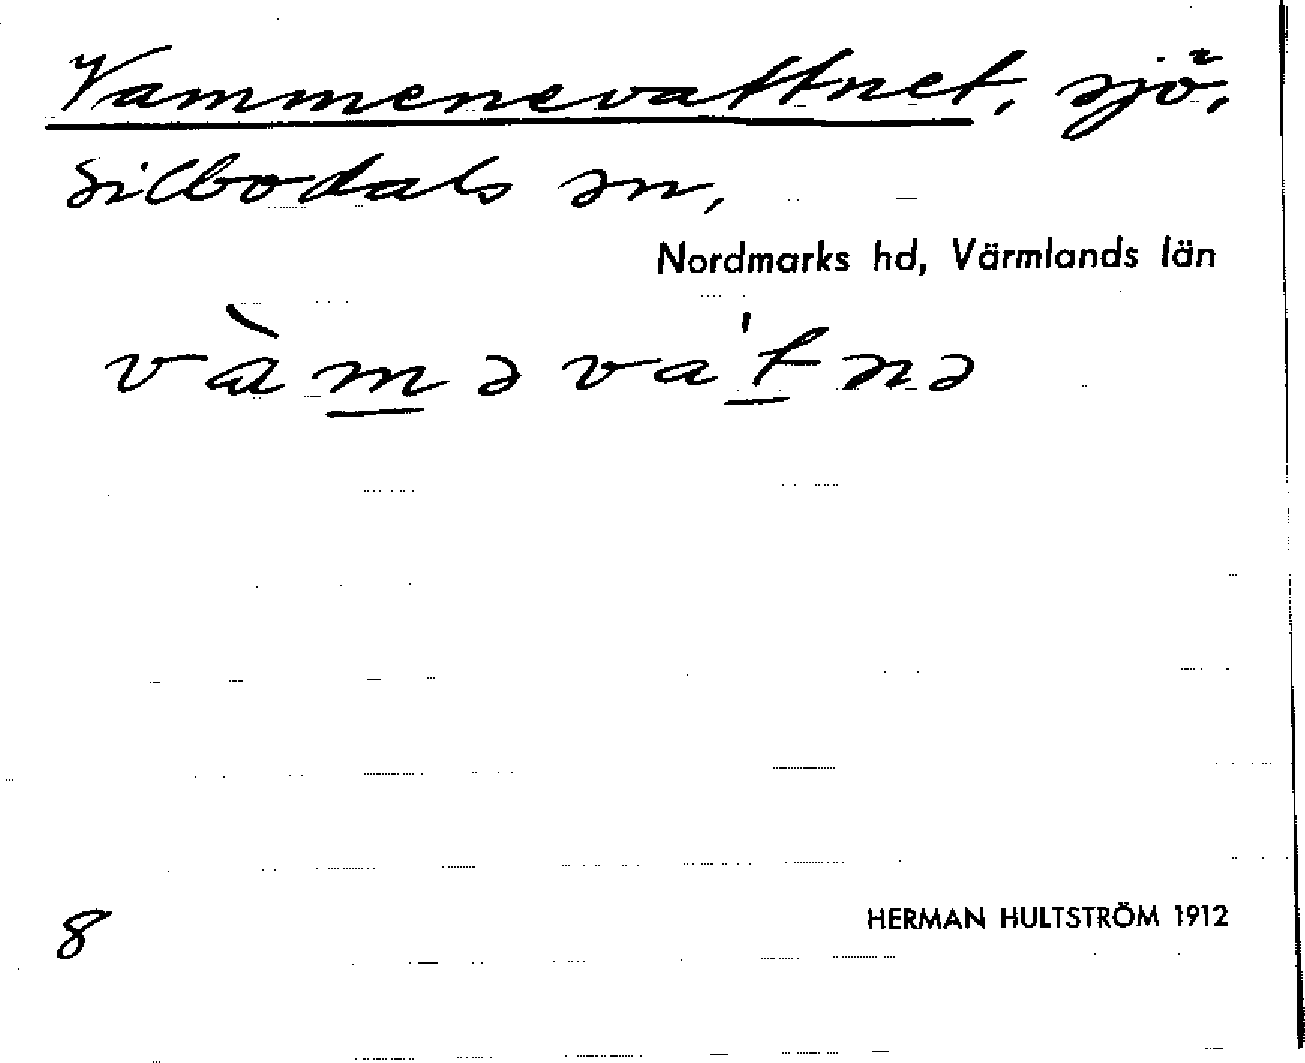 Vammenevattnet, sjö,
Silbodals sn,
Nordmarks hd, Värmlands län
vàm̲əva't̲nə
8
HERMAN HULTSTRÖM 1912